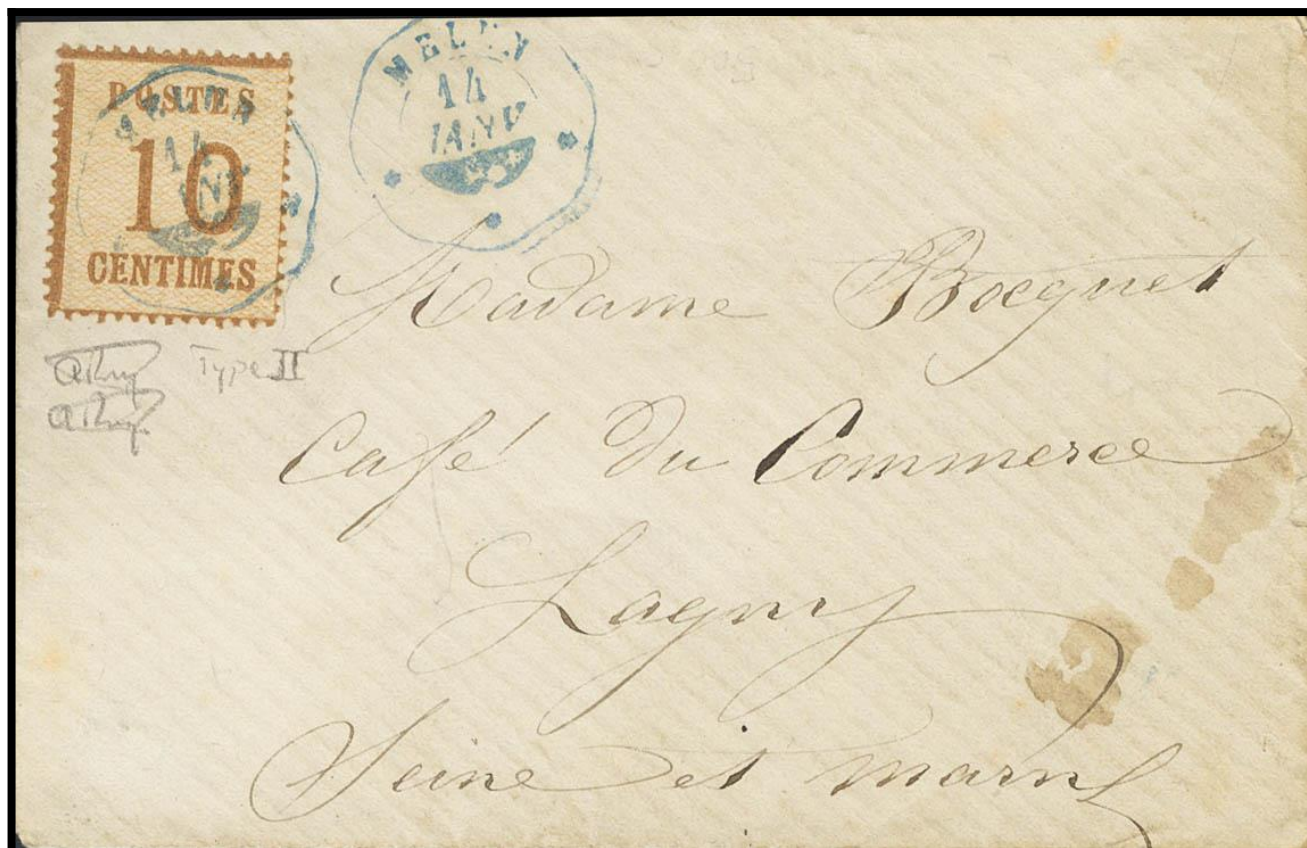 POSTES
10
CENTIMES
MELUN
14
JANV
MELUN
14
JANV
Type II
Madame Bocquet
Café du Commerce
Lagny
Seine et marne